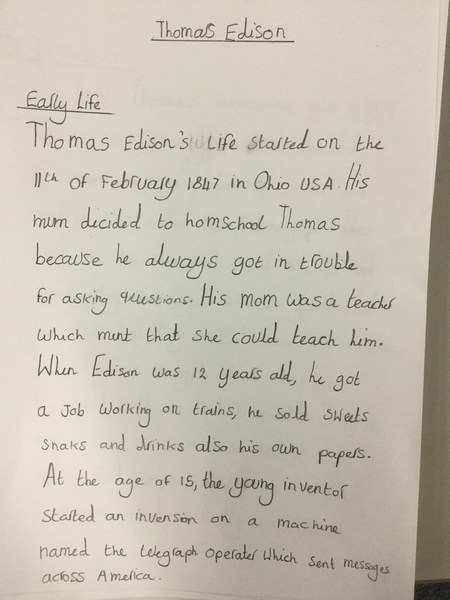 Thomas Edison
Early Life
Thomas Edison's Life started on the
11th of February 1847 in Ohio USA. His
mum decided to homschool Thomas
because he always got in trouble
for asking questions. His mom was a teacher
which ment that she could teach him.
When Edison was 12 years old, he got
a Job working on trains, he sold sweets
snaks and drinks also his own papers.
At the age of 15, the young inventor
started an invension on a machine
named the telegraph operater which sent messages
across America.